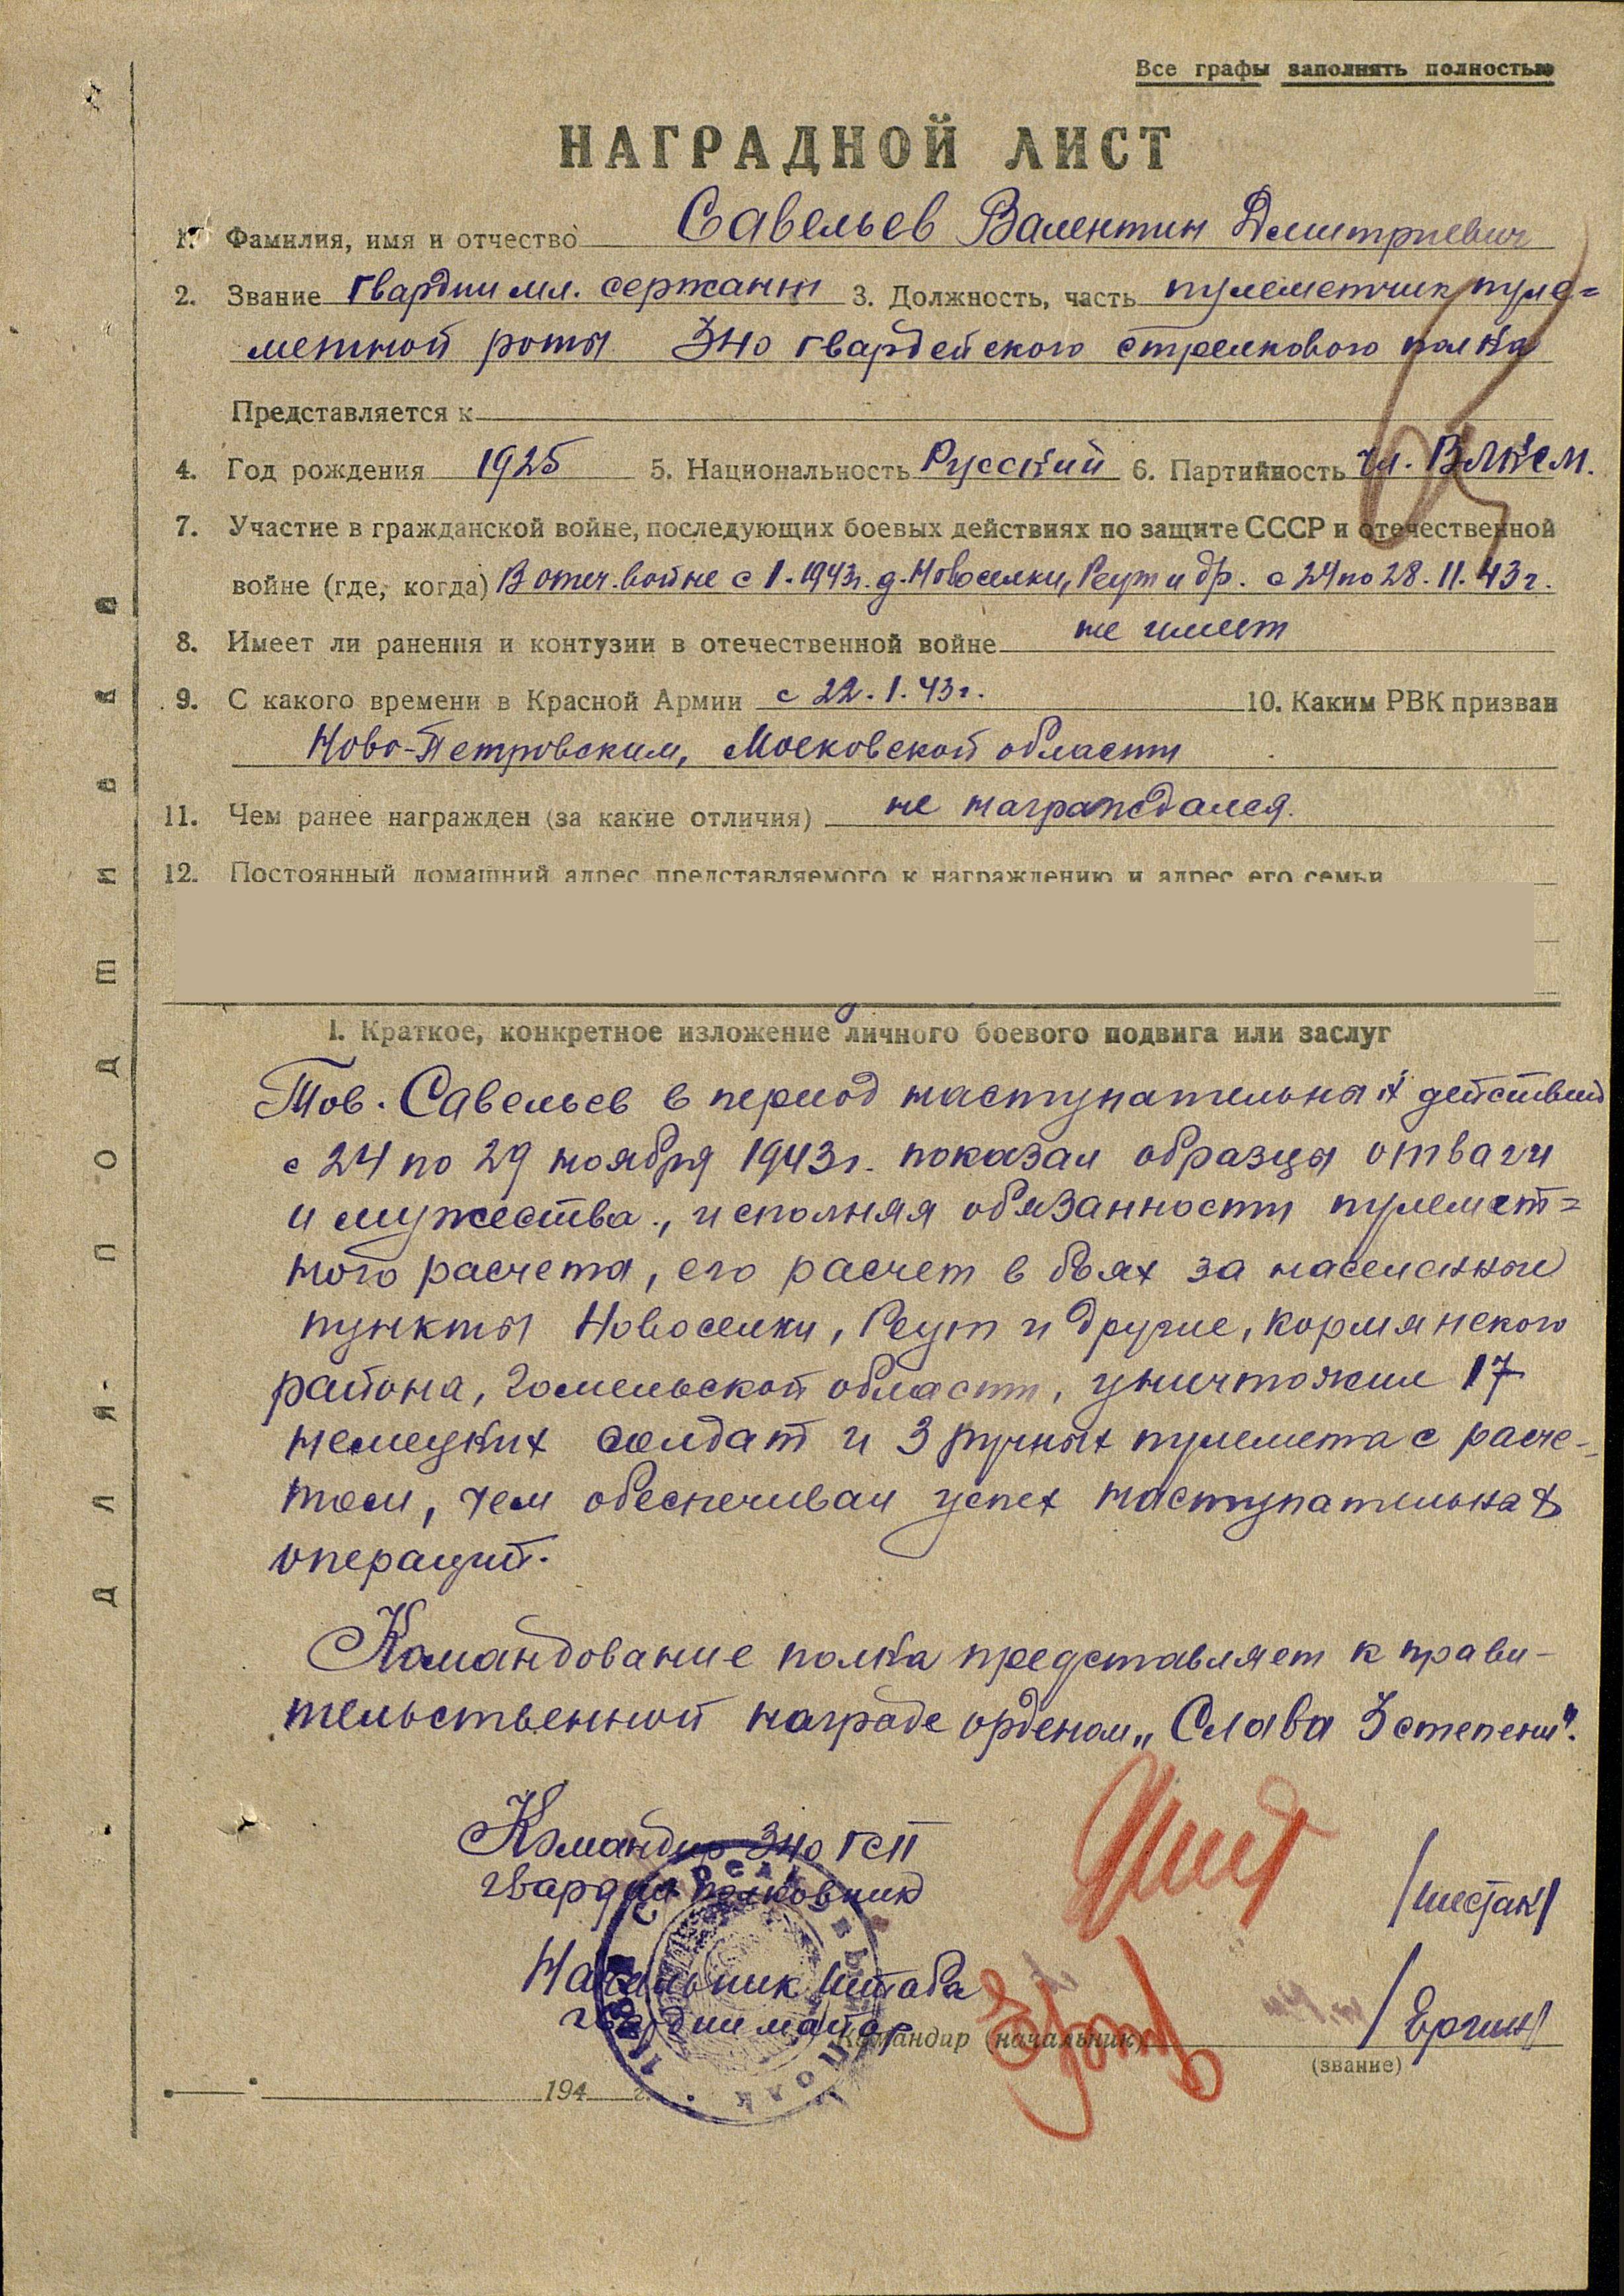 Все графы заполнять полностью
НАГРАДНОЙ ЛИСТ
1. Фамилия, имя и отчество Савельев Валентин Дмитриевич
2. Звание гвардии мл. сержант 3. Должность, часть пулеметчик пуле=
метной роты 340 гвардейского стрелкового полка
Представляется к
4. Год рождения 1925 5. Национальность Русский 6. Партийность чл. ВЛКСМ.
7. Участие в гражданской войне, последующих боевых действиях по защите СССР и отечественной
войне (где, когда) В отеч. войне с 1.1943г. д. Новоселки, Реут и др. с 24 по 28.11.43г.
8. Имеет ли ранения и контузии в отечественной войне не имеет
9. С какого времени в Красной Армии с 22.1.43г. 10. Каким РВК призван
Ново-Петровским, Московской области
11. Чем ранее награжден (за какие отличия) не награждался.
12. Постоянный домашний адрес представляемого к награждению и адрес его семьи
I. Краткое, конкретное изложение личного боевого подвига или заслуг
Тов. Савельев в период наступательных действий
с 24 по 29 ноября 1943г. показал образцы отваги
и мужества., исполняя обязанности пулемет=
ного расчета, его расчет в боях за населенные
пункты Новоселки, Реут и другие, кормянского
района, гомельской области, уничтожил 17
немецких солдат и 3 ручных пулемета с расче-
том, чем обеспечивал успех наступательных
операций.
Командование полка представляет к прави-
тельственной награде орденом „Слава 3 степени".
Командир 340 ГСП
гвардии полковник /Шестак/
Начальник штаба
гвардии майор /Ергин/
Командир (начальник)
(звание)
194 г.
ДЛЯ ПОДШИВКИ